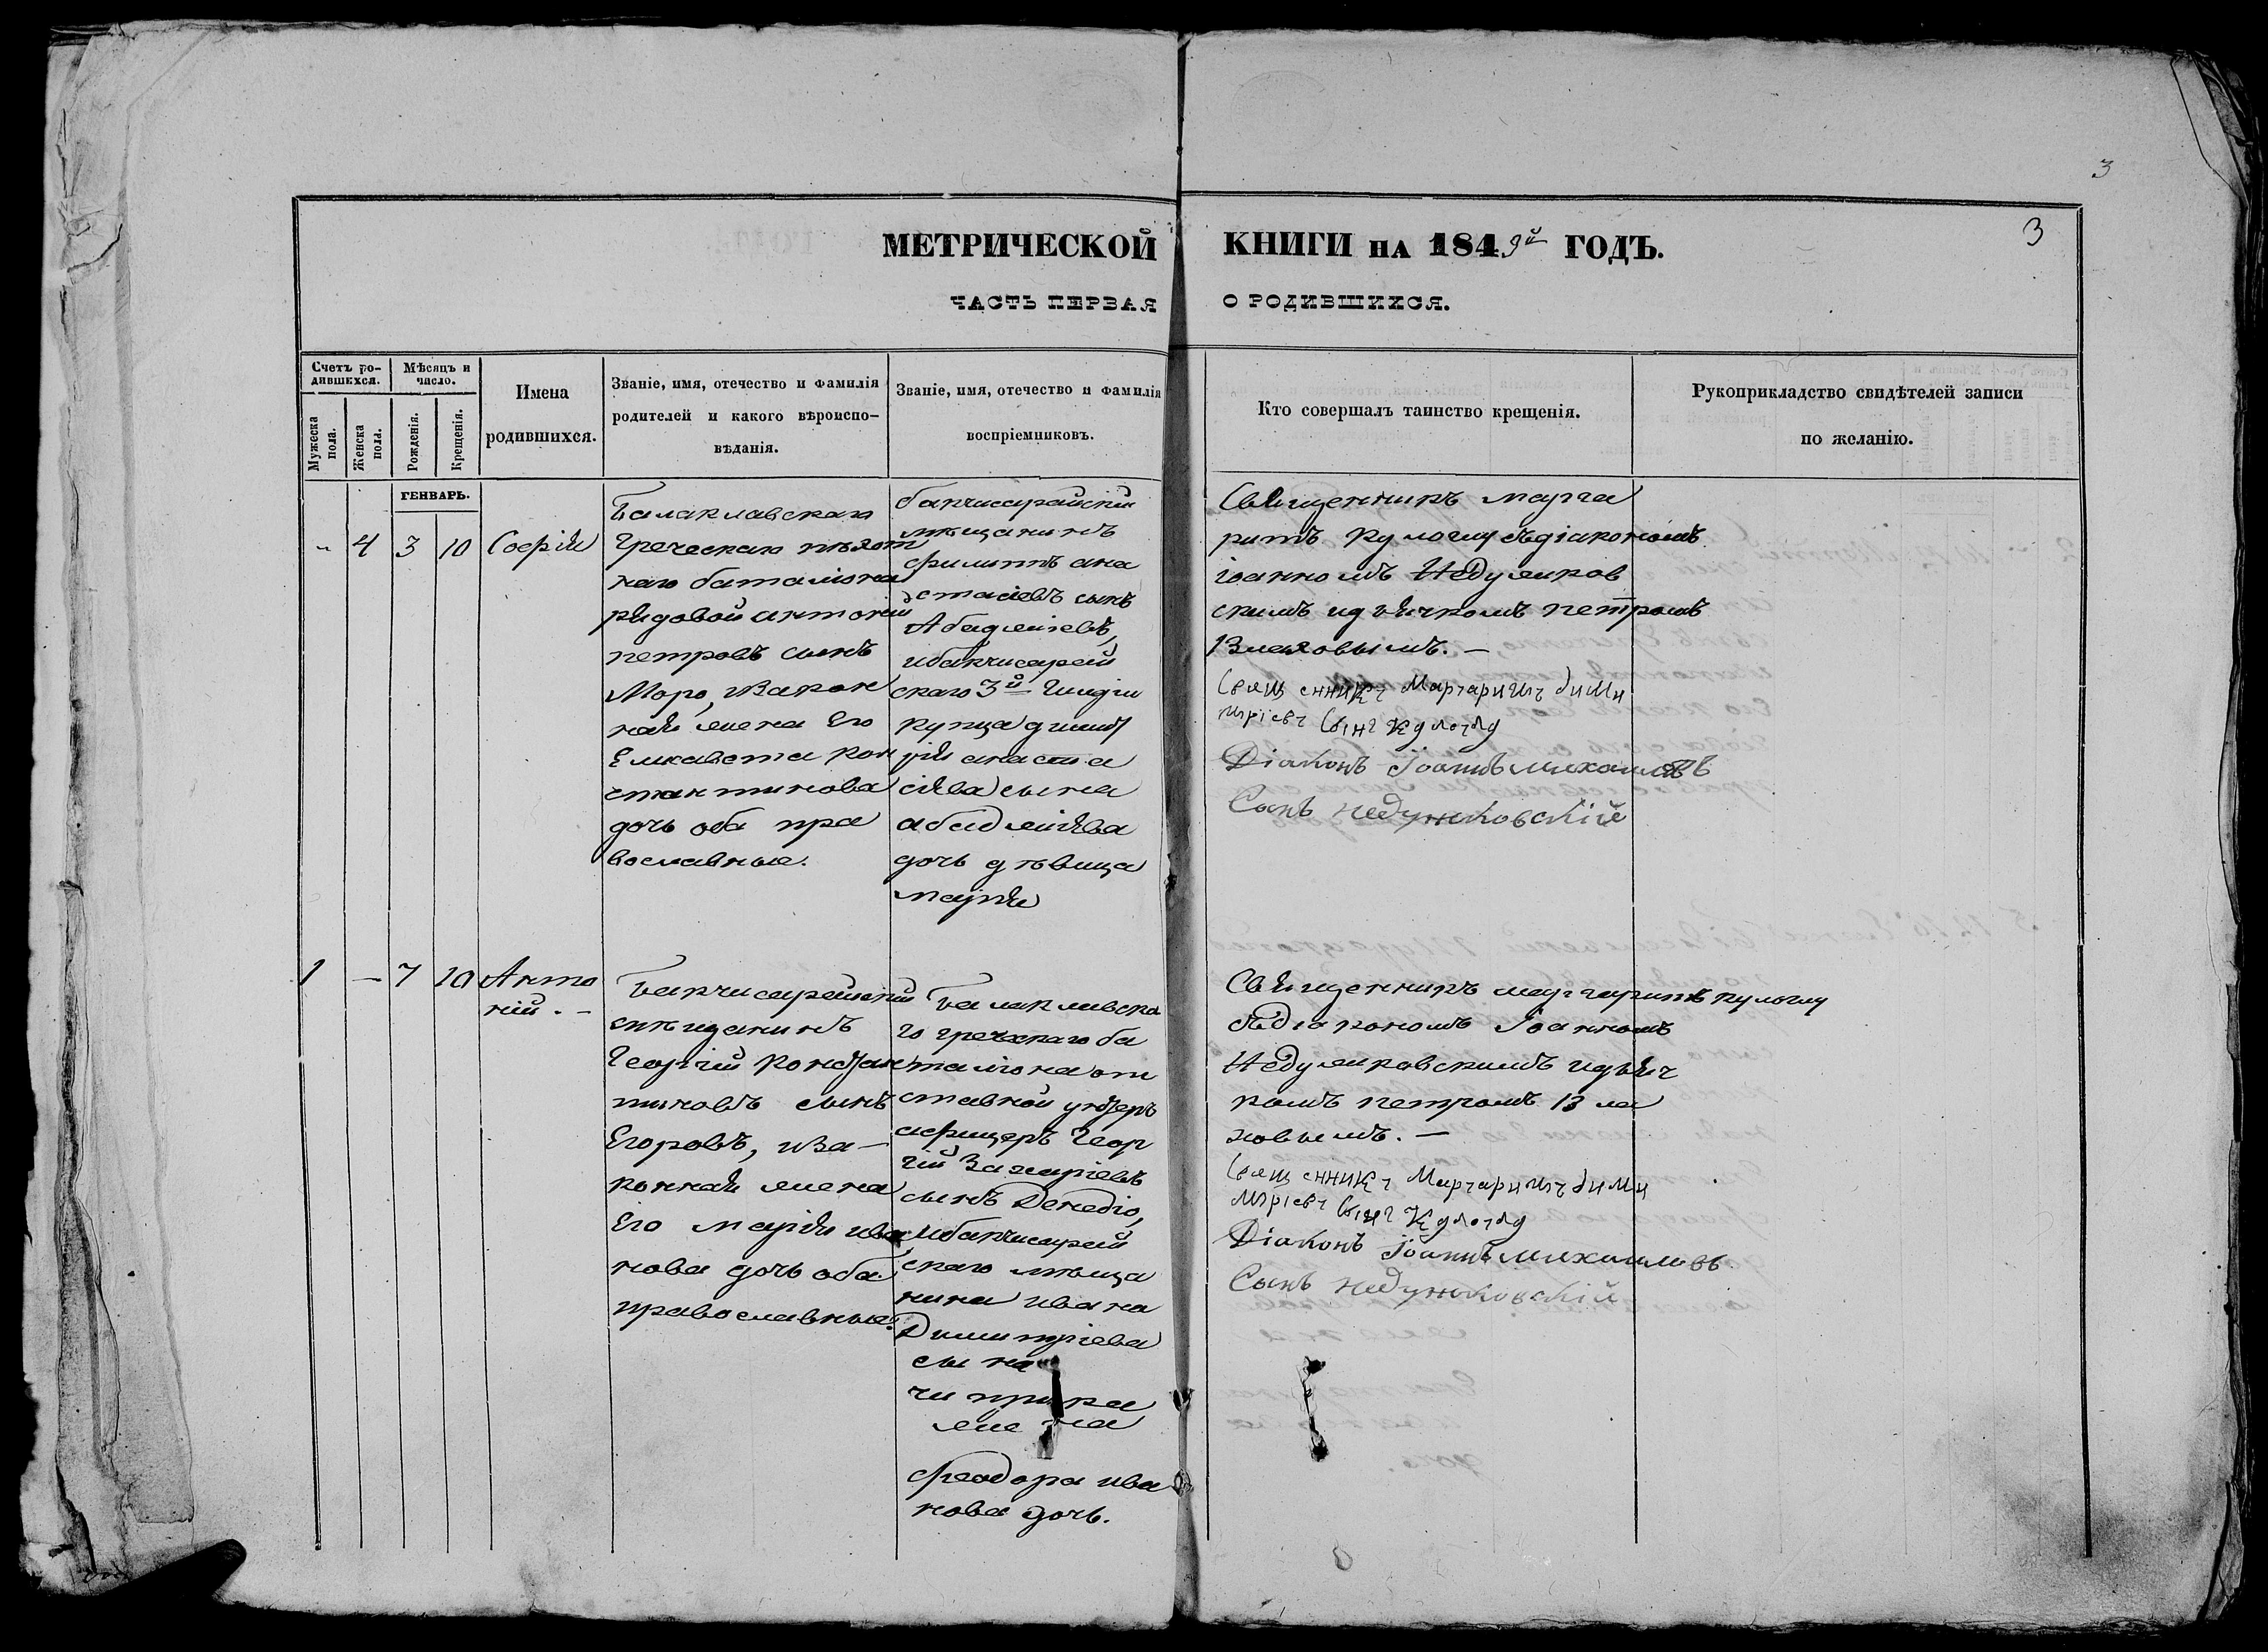 3
МЕТРИЧЕСКОЙ КНИГИ НА 1849й ГОДЪ.
3
ЧАСТЬ ПЕРВАЯ О РОДИВШИХСЯ.
Счетъ ро-
дившихся.
Мужеска
пола.
Женска
пола.
Мѣсяцъ и
число.
Рожденія.
Крещенія.
Имена
родившихся.
Званіе, имя, отечество и фамилія
родителей и какого вѣроиспо-
вѣданія.
Званіе, имя, отечество и фамилія
воспріемниковъ.
Кто совершалъ таинство крещенія.
Рукоприкладство свидѣтелей записи
по желанію.
ГЕНВАРЬ.
" 4 3 10 Софія
Балаклавскаго
Греческаго пѣхот
наго баталіона
рядовой антоній
петровъ сынъ
Моро, изакон
ная жена Его
Елисавета кон
стантинова
дочь оба пра
вославные.
бакчисарайскій
мѣщанинъ
филиппъ ана
стасіевъ сынъ
Абаджіевъ,
ибакчисарай
скаго 3й Гильдіи
купца димит
рія анаста
сіева сына
абаджіева
дочь дѣвица
марія
Священникъ марга
ритъ кулоглу съдіакономъ
іоанномъ Недужков
скимъ идьячкомъ петромъ
Священникъ Маргаритъ дими
тріевъ Сынъ Кулоглу
Діаконъ Іоаннъ михаиловъ
Сынъ недужковскій
1 — 7 10 Анто
ній. -
Бакчисарайскій
мѣщанинъ
Георгій Констан
тиновъ сынъ
Егоровъ, иза-
конная жена
Его марія ива
нова дочь оба
православные.
Балаклавска
го греческаго ба
таліона от
ставной унтеръ
афицеръ Геор
гій Захаріевъ
сынъ
ибакчисарай
скаго мѣща
нина ивана
Димитріева
сына
жена
феодора ива
нова дочь.
Священникъ маргаритъ кулоглу
съдіакономъ Іоанномъ
Недужковскимъ идьяч
комъ петромъ
Священникъ Маргаритъ дими
тріевъ Сынъ Кулоглу
Діаконъ Іоаннъ михаиловъ
Сынъ недужковскій